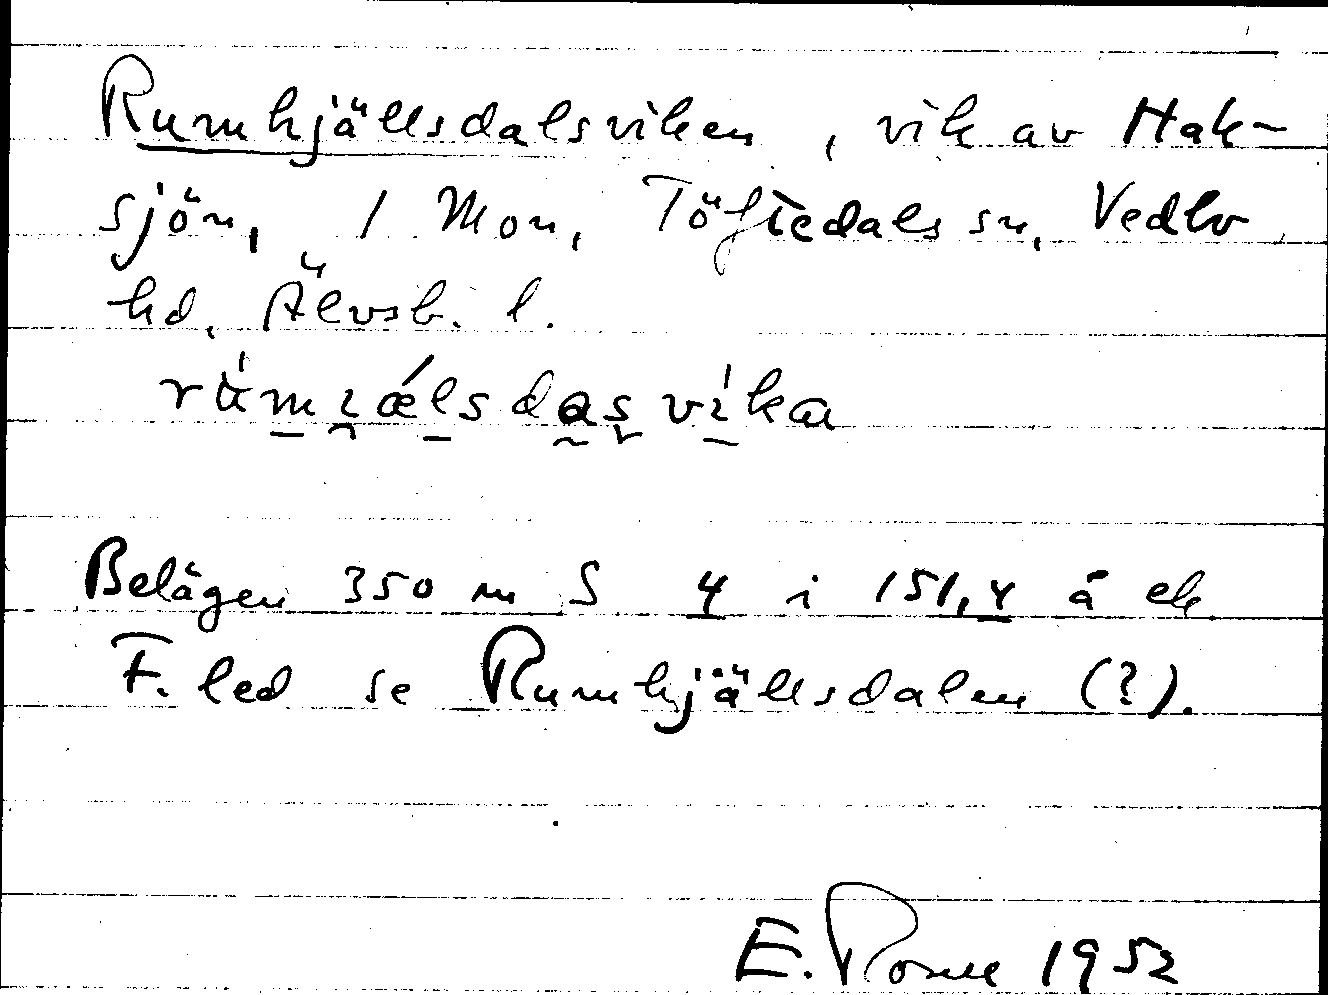 Rumhjällsdalsviken, vik av Hak-
sjön, 1 Mon, Töftedals sn, Vedbo
hd, Älvsb. l.
Belägen 350 m S 4 i 151,4 å ek
F. led se Rumhjällsdalen (?).
E. Rome 1952